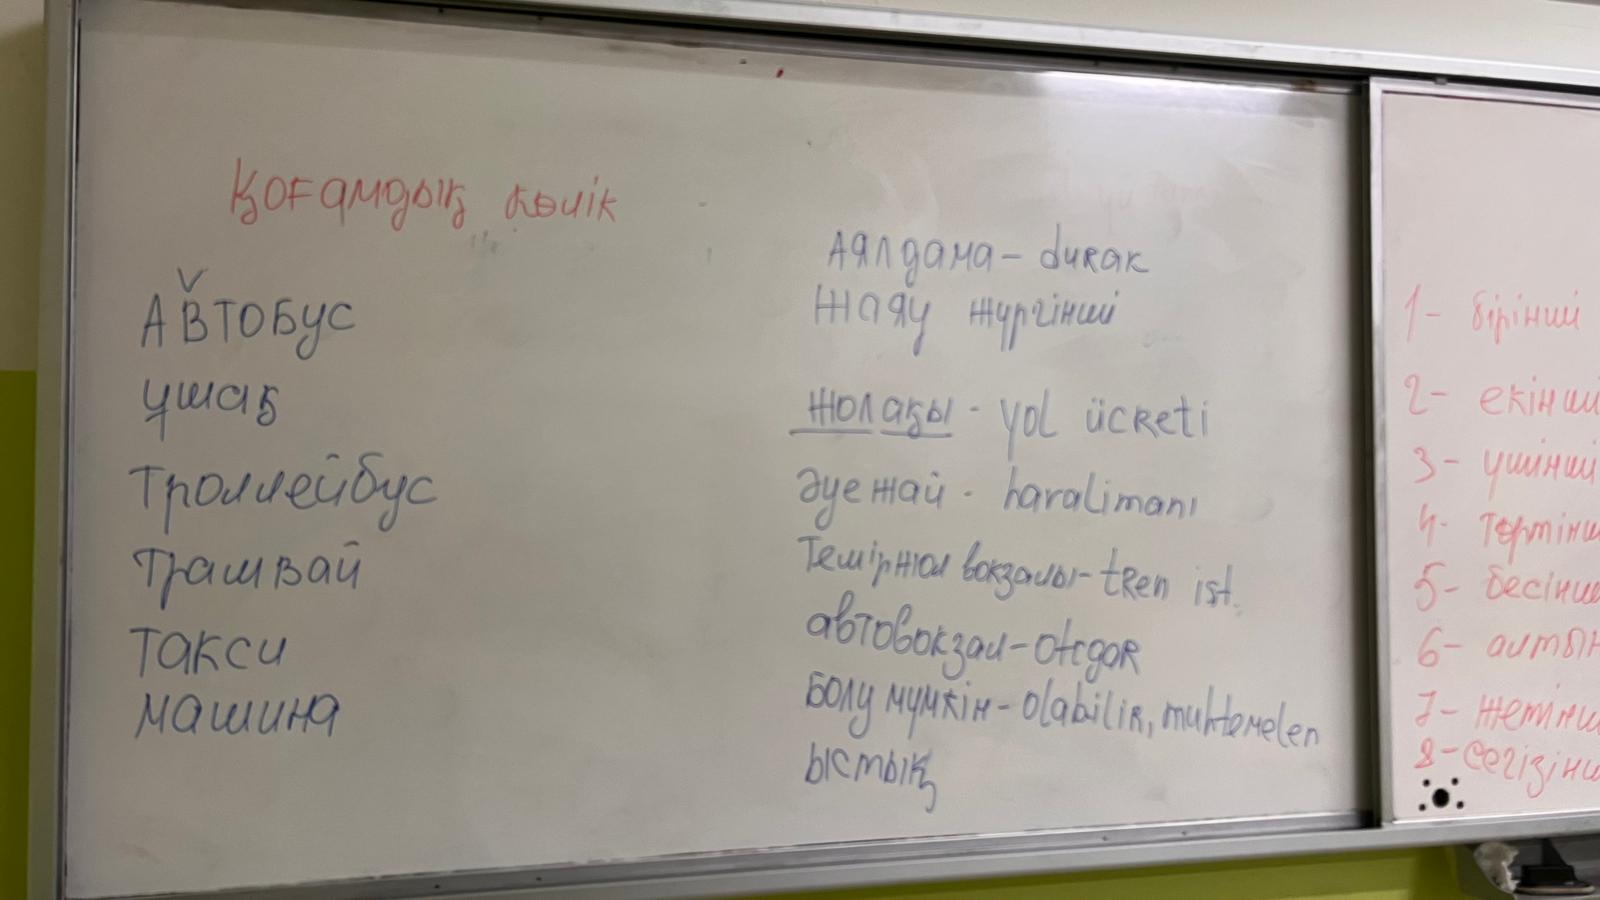 Қоғамдық көлік
Автобус
ұшақ
Троллейбус
Трамвай
Такси
Машина
Аялдама - durak
Жаяу жүргінші
жолақы - yol ücreti
Әуежай - havalimanı
Теміржол вокзалы - tren ist.
автовокзал - otogar
Болу мүмкін - olabilir, muhtemelen
ыстық
1- бірінші
2- екінші
3- үшінші
4- төртінш
5- бесінш
6- алтын
7- жетінш
8- сегізінш